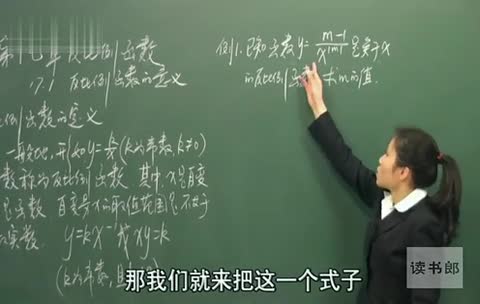 第十七章 反比例函数
17.1 反比例函数的意义
比例函数的意义
一般地,形如y=k/x(k为常数,k≠0)
数称为反比例函数,其中x是自变
是函数,自变量x的取值范围是不等于
的实数.
y=kx⁻¹或xy=k
(k为常数,且
例1.已知函数y=m-1/x^|m|是关于x
的反比例函数,求m的值.
读书郎
那我们就来把这一个式子